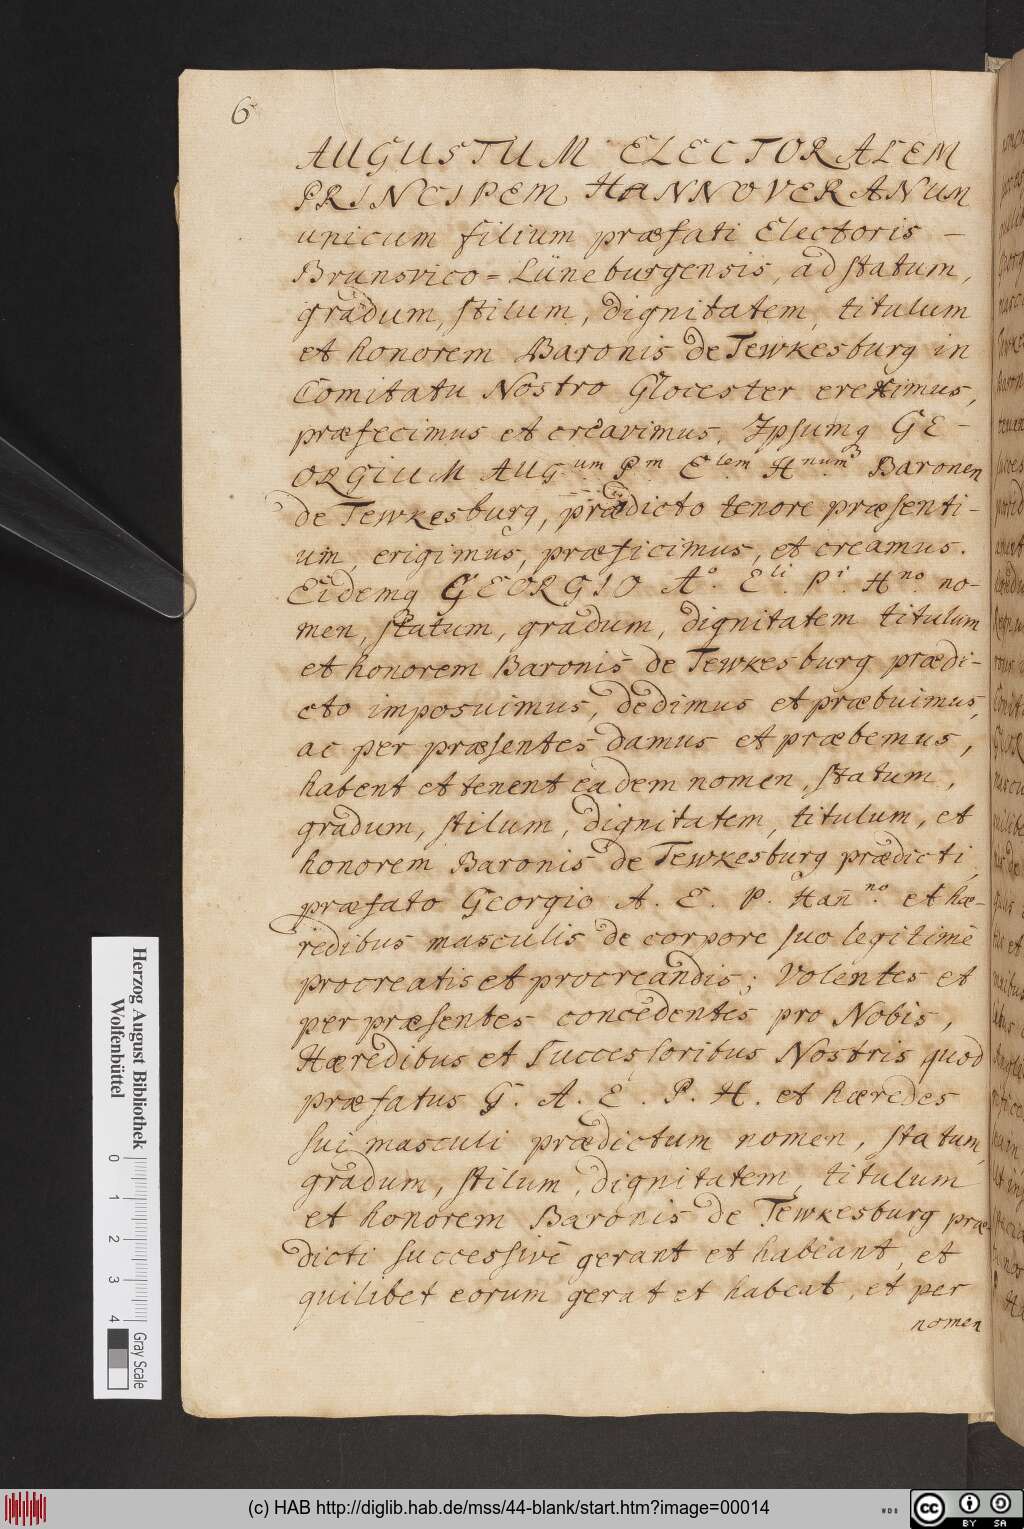 6
AUGUSTUM ELECTORALEM
PRINCIPEM HANNOVERANUM
unicum filium præfati Electoris –
Brunsvico = Lüneburgensis, ad statum,
gradum, stilum, dignitatem, titulum
et honorem Baronis de Tewkesburg in
Comitatu Nostro Glocester ereximus,
præfecimus et creavimus, Ipsumq GE-
ORGIUM AUG.um P.m E.lem H.num Baronen
de Tewkesburg, prædicto tenore præsenti-
um, erigimus, præficimus, et creamus.
Eidemq GEORGIO A.o E.li P.i H.no no-
men, statum, gradum, dignitatem titulum
et honorem Baronis de Tewkesburg prædi-
cto imposuimus, dedimus et præbuimus,
ac per præsentes damus et præbemus,
habent et tenent eadem nomen, statum,
gradum, stilum, dignitatem, titulum, et
honorem Baronis de Tewkesburg prædicti,
præfato Georgio A. E. P. Hañ.no et hæ-
redibus masculis de corpore suo legitimè
procreatis et procreandis; Volentes et
per præsentes concedentes pro Nobis,
Hæredibus et Successoribus Nostris quod
præfatus G. A. E. P. H. et hæredes
sui masculi prædictum nomen, statum,
gradum, stilum, dignitatem, titulum
et honorem Baronis de Tewkesburg præ-
dicti successivè gerant et habeant, et
quilibet eorum gerat et habeat, et per
nomen
Herzog August Bibliothek
Wolfenbüttel
0 1 2 3 4
Gray Scale
(c) HAB http://diglib.hab.de/mss/44-blank/start.htm?image=00014
WDB
cc BY SA